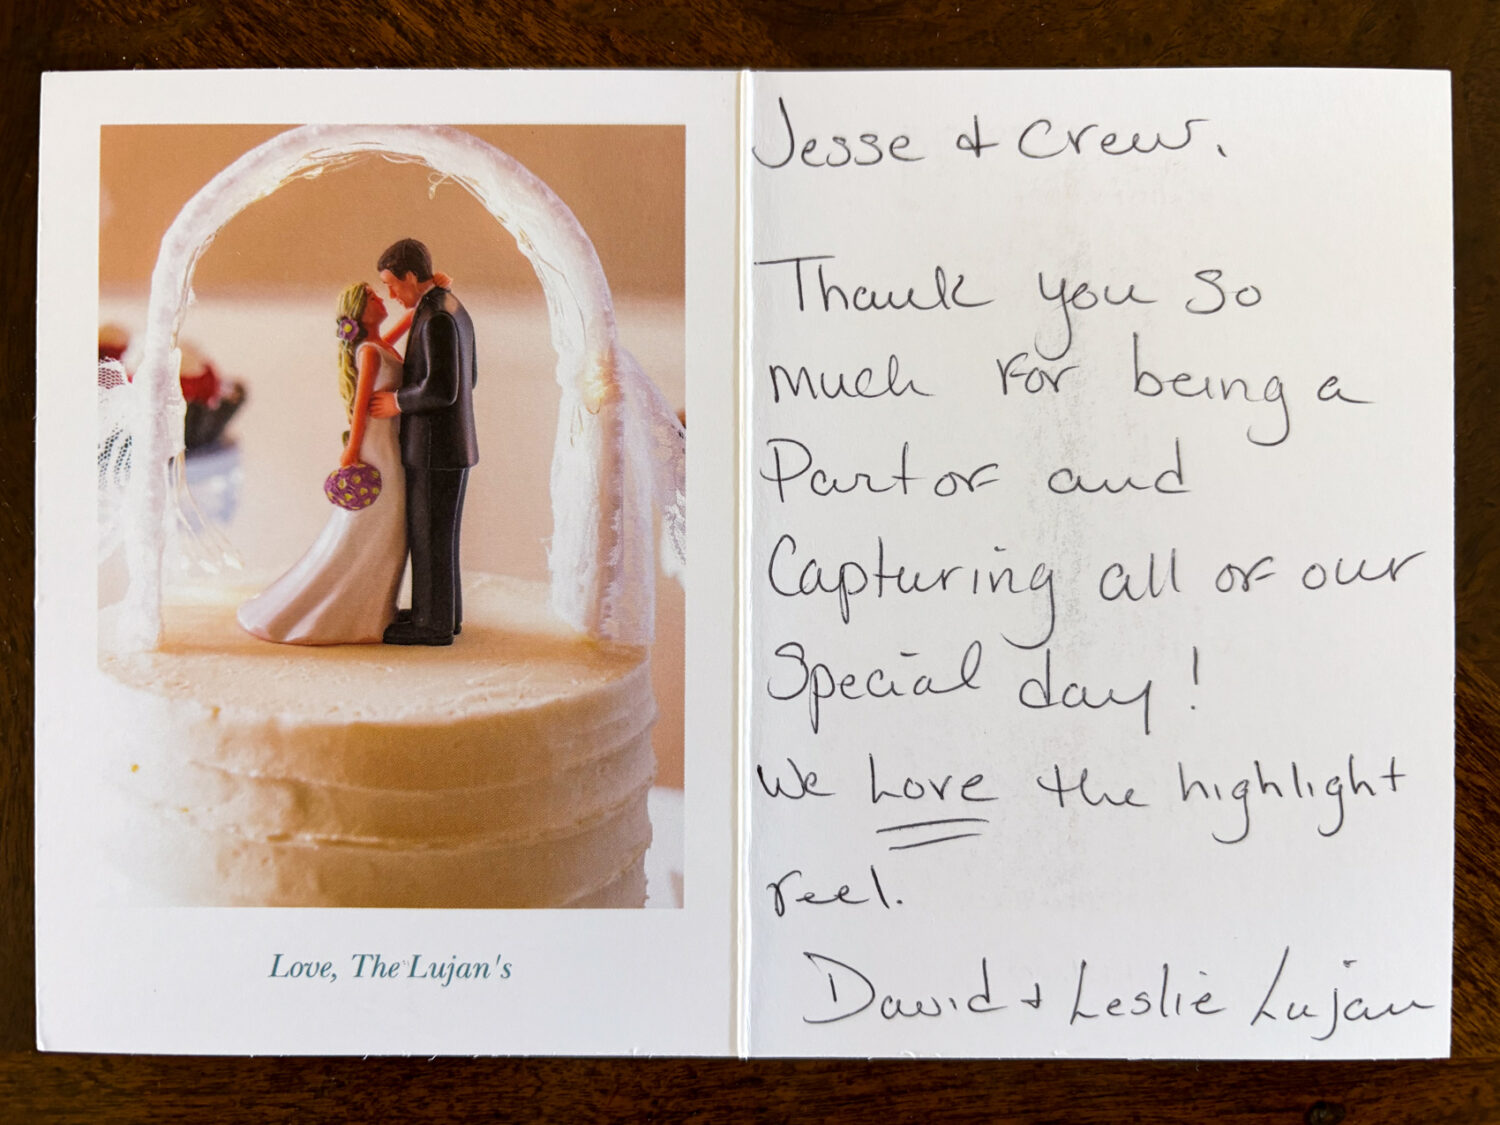 Love, The Lujan's
Jesse & Crew,
Thank you so
much for being a
Part of and
Capturing all of our
Special day!
We Love the highlight
reel.
David & Leslie Lujan